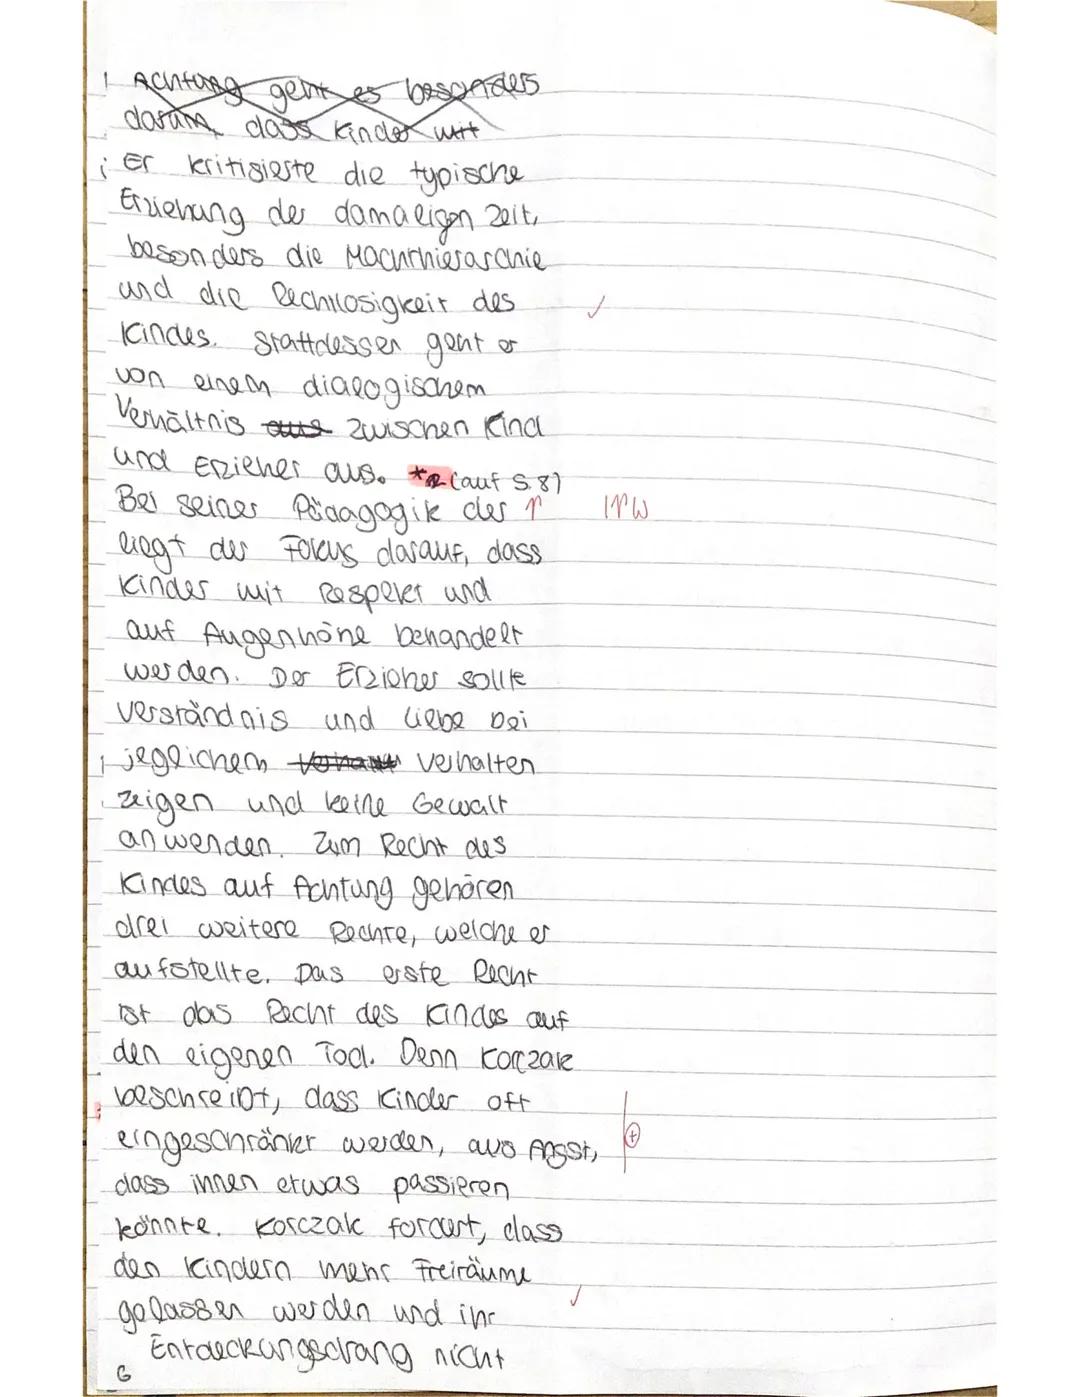 Achtung geht es besonders
darum, dass Kinder mit
Er kritisierte die typische
Erziehung der damaligen Zeit,
besonders die Machthierarchie
und die Rechtlosigkeit des
Kindes. Stattdessen geht er
von einem dialogischem
Verhältnis aus zwischen Kind
und Erzieher aus. *2 (auf S. 8)
Bei seiner Pädagogik der ↑ W
liegt der Fokus darauf, dass
Kinder mit Respekt und
auf Augenhöhe behandelt
werden. Der Erzieher sollte
Verständnis und Liebe bei
jeglichem Verhalten
zeigen und keine Gewalt
anwenden. Zum Recht des
Kindes auf Achtung gehören
drei weitere Rechte, welche er
aufstellte. Das erste Recht
ist das Recht des Kindes auf
den eigenen Tod. Denn Korczak
beschreibt, dass Kinder oft
eingeschränkt werden, aus Angst,
dass ihnen etwas passieren
könnte. Korczak fordert, dass
den Kindern mehr Freiräume
gelassen werden und ihr
Entdeckungsdrang nicht
6